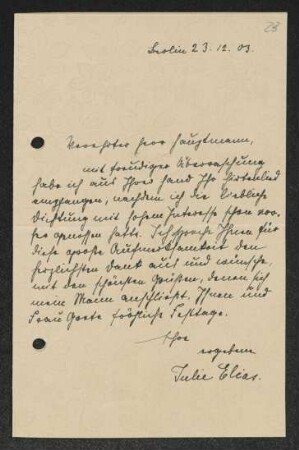 28
Berlin 23.12.03.
Verehrter Herr Hauptmann,
mit freudiger Überraschung
habe ich aus Ihrer Hand Ihr Hirtenlied
empfangen, nachdem ich die liebliche
Dichtung mit hohem Interesse schon vor-
her genossen hatte. Ich spreche Ihnen für
diese große Aufmerksamkeit den
herzlichsten Dank aus und wünsche,
mit den schönsten Grüßen, denen sich
mein Mann anschließt, Ihnen und
Frau Grete fröhliche Festtage.
Ihre
ergebene
Julie Elias.